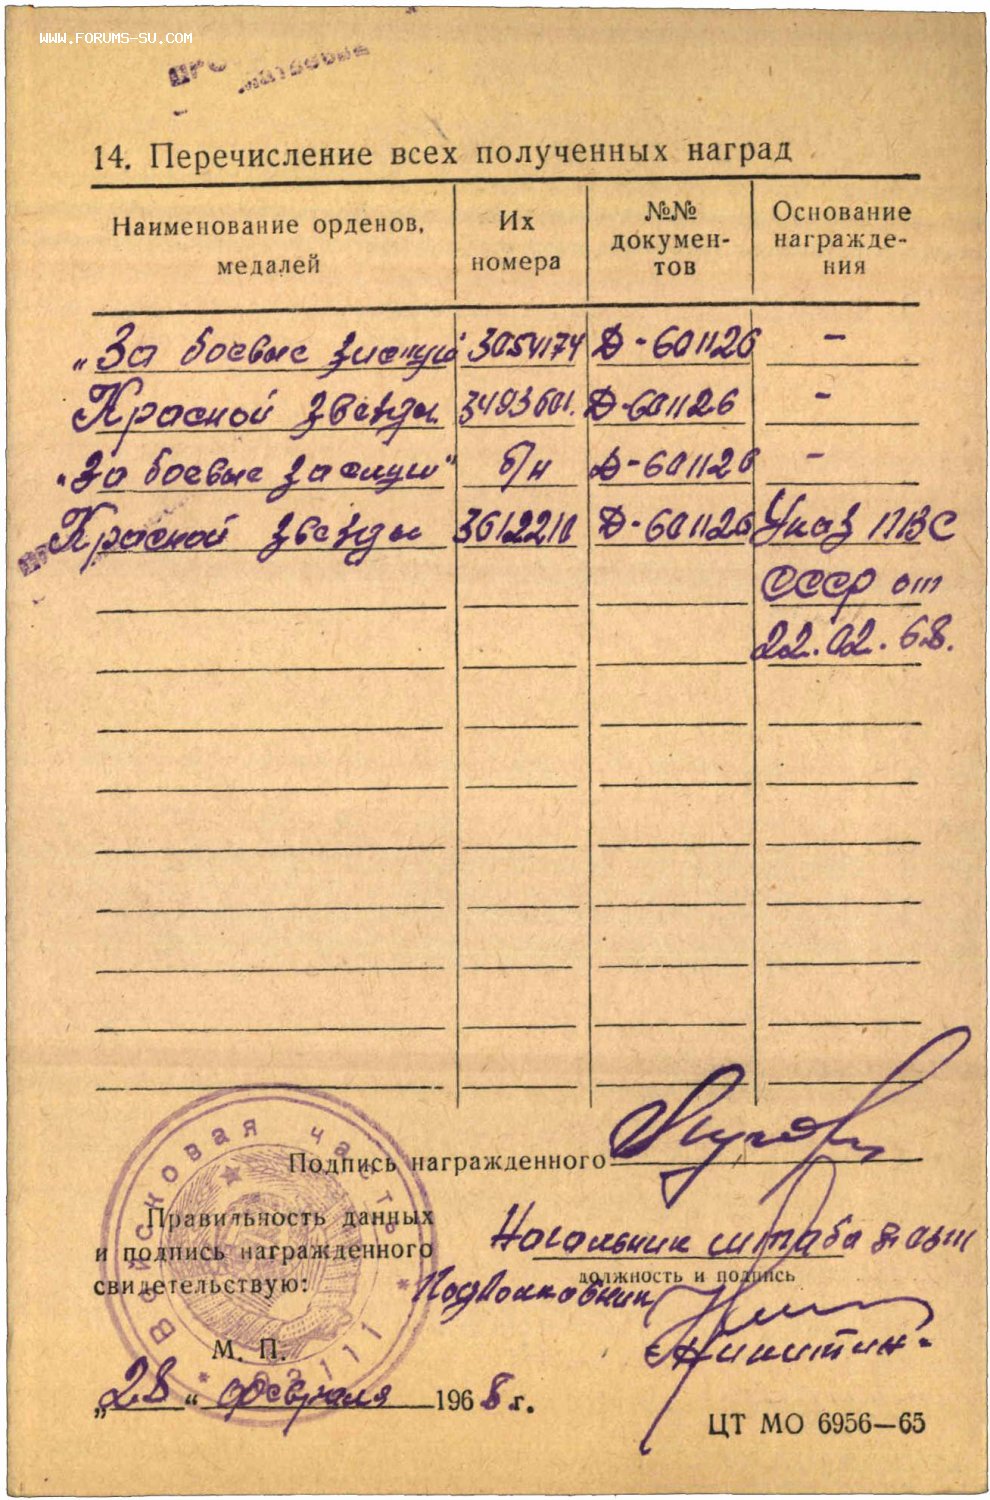 WWW.FORUMS-SU.COM
14. Перечисление всех полученных наград
Наименование орденов, медалей
Их номера
№№ докумен-
тов
Основание
награжде-
ния
„За боевые заслуги" 3054174 Д-601126 -
Красной звезды 3493601. Д-601126 -
„За боевые заслуги" б/н Д-601126 -
Красной звезды 3612210 Д-601126 Указ ПВС
СССР от
22.02.68.
Войсковая часть
Подпись награжденного
Правильность данных
и подпись награжденного
свидетельствую:
Начальник штаба в/части
должность и подпись
Подполковник
Никитин.
М. П.
„28" февраля 1968 г.
ЦТ МО 6956—65